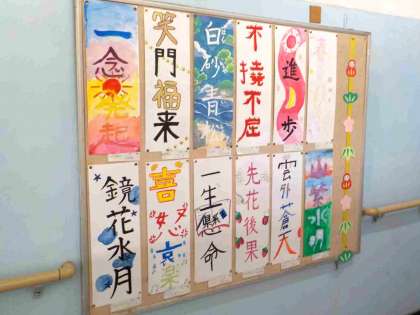 一念発起
笑門福来
白砂青松
不撓不屈
進歩
鏡花水月
喜怒哀楽
一生懸命
先花後果
雲外蒼天
山紫水明